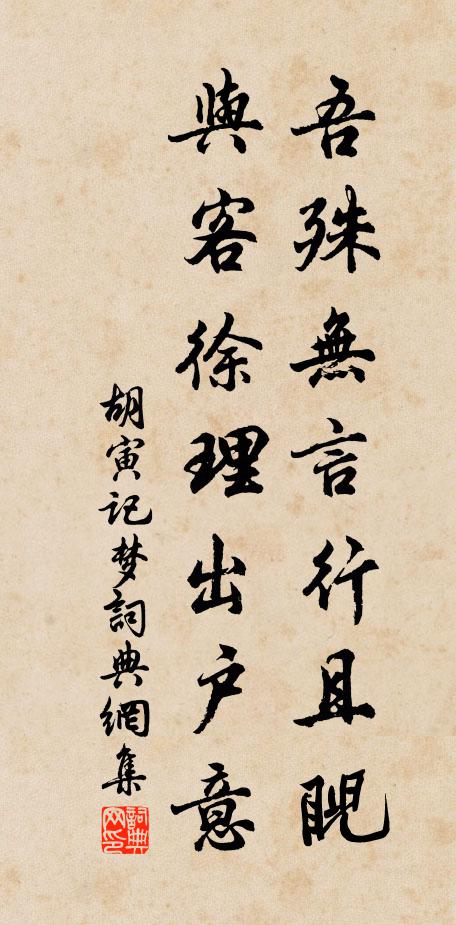 吾殊無言行且睨
與客徐理出户意
胡寅记梦詞典網集
詞典
网印